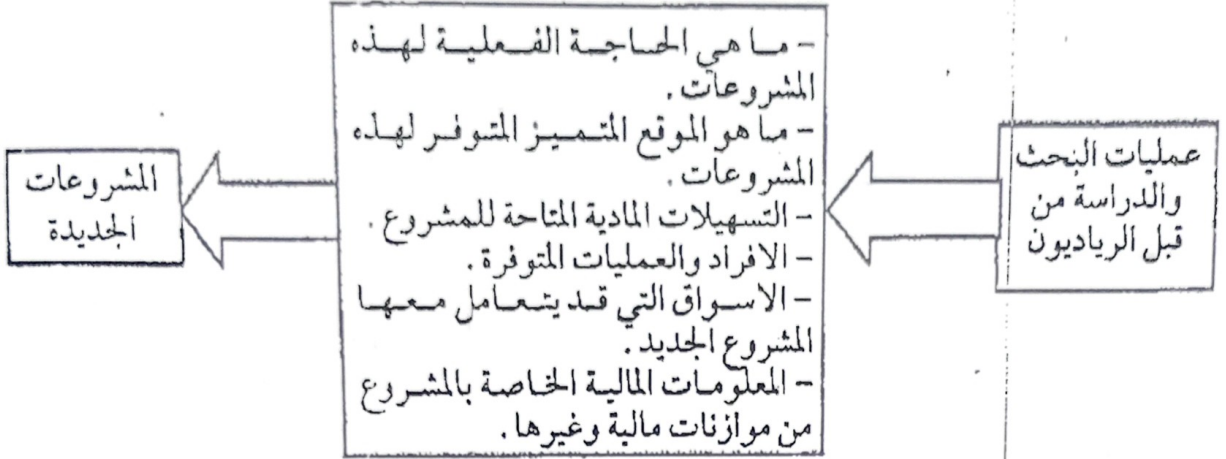 عمليات البحث
والدراسة من
قبل الرياديون
- ما هي الحاجة الفعلية لهذه
المشروعات .
- ما هو الموقع المتميز المتوفر لهذه
المشروعات .
- التسهيلات المادية المتاحة للمشروع .
- الافراد والعمليات المتوفرة .
- الاسواق التي قد يتعامل معها
المشروع الجديد .
- المعلومات المالية الخاصة بالمشروع
من موازنات مالية وغيرها .
المشروعات
الجديدة